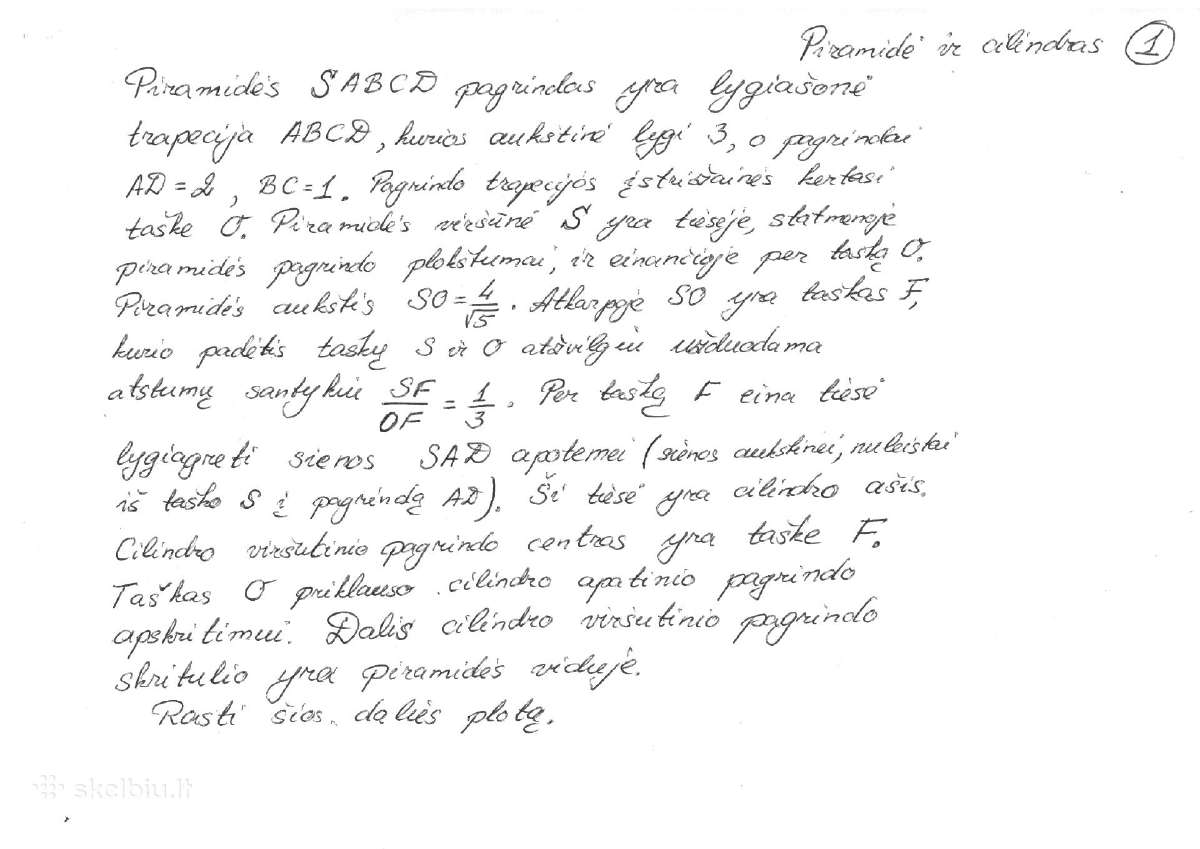 Piramidė ir cilindras 1
Piramidės SABCD pagrindas yra lygiašonė
trapecija ABCD, kurios aukštinė lygi 3, o pagrindai
AD = 2, BC = 1. Pagrindo trapecijos įstrižainės kertasi
taške O. Piramidės viršūnė S yra tiesėje, statmenoje
piramidės pagrindo plokštumai, ir einančioje per tašką O.
Piramidės aukštis SO = 4/√5. Atkarpoje SO yra taškas F,
kurio padėtis taškų S ir O atžvilgiu užduodama
atstumų santykiu SF/OF = 1/3. Per tašką F eina tiesė
lygiagreti sienos SAD apotemei (sienos aukštinei, nuleistai
iš taško S į pagrindą AD). Ši tiesė yra cilindro ašis.
Cilindro viršutinio pagrindo centras yra taške F.
Taškas O priklauso cilindro apatinio pagrindo
apskritimui. Dalis cilindro viršutinio pagrindo
skritulio yra piramidės viduje.
Rasti šios dalies plotą.
skelbiu.lt